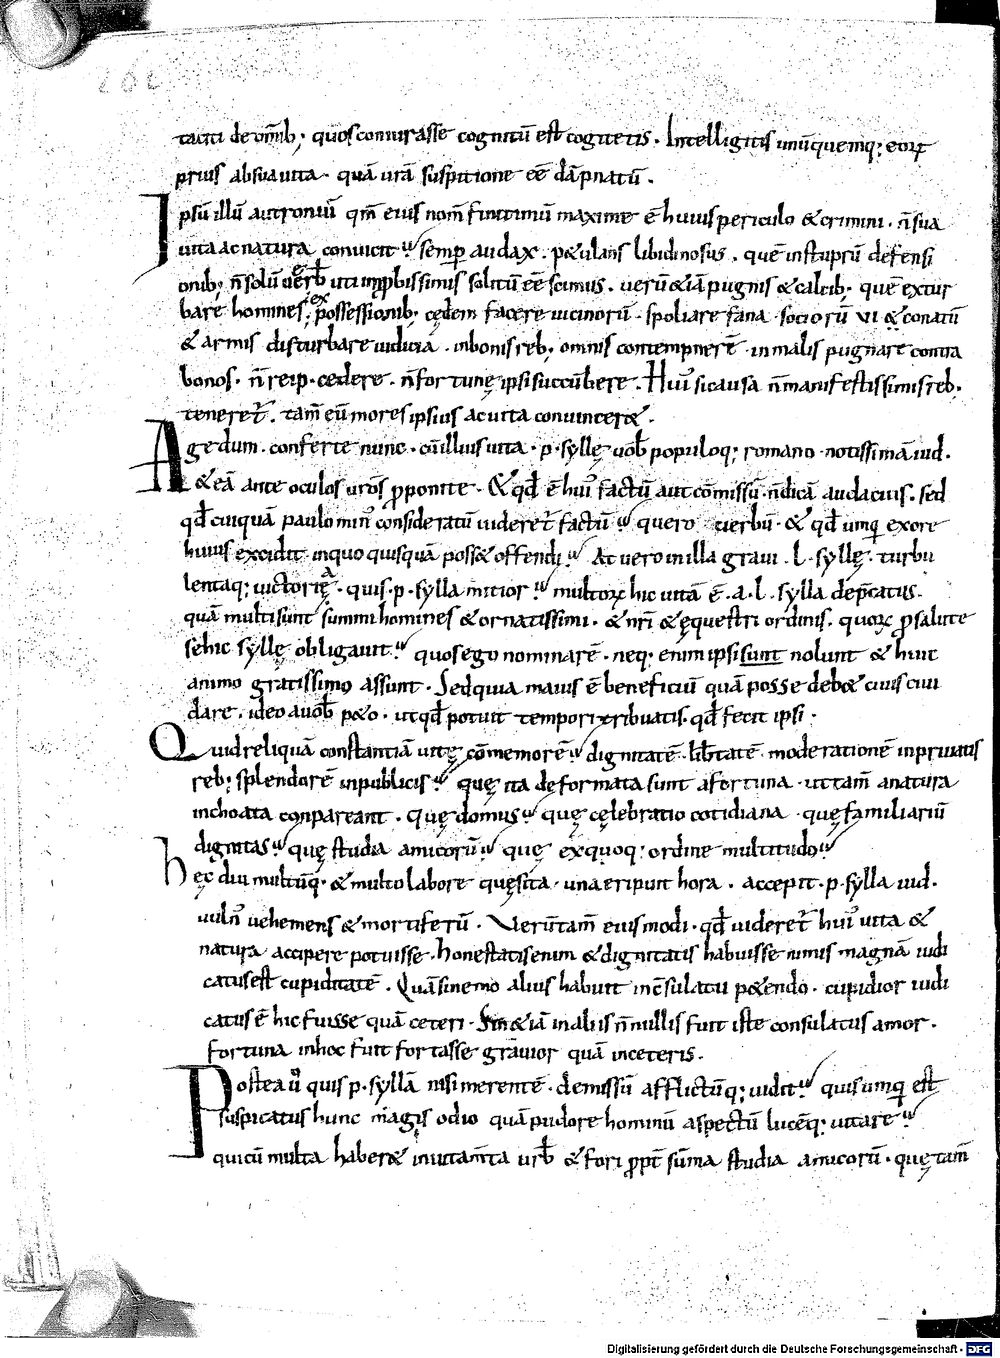 taciti de om̅ib; quos coniurasse cognitū est cogitetis. Intelligitis unūquemq; eorꝝ
prius absua uita. quā urā suspitione eē dāpnatū.
Ipsū illū autroniū qm̅ eius nom̅ finitimū maxime ē huius periculo & crimini. n̅ sua
uita ac natura conuicit semp̅ audax. p&ulans libidinosus. quē instuprū defensi
onib; n̅ solū uerb̅ uti improbissimis solitū eē scimus. uerū &iā pugnis & calcib; quē extur
bare homines ex possessionib; cędem facere uicinorū. spoliare fana sociorū ui & conatū
& armis disturbare iudicia. inbonis reb; omnis contempnere̅. in malis pugnare contra
bonos. n̅ reip. cedere. n̅ fortunę ipsi succūbere. Hui' si causa n̅ manifestissimis reb;
teneret̅. tam̅ eū mores ipsius ac uita conuincer&.
Agedum. conferte nunc. cū illius uita. p. syllę uob̅ populoq; romano notissimā iud.
& eā ante oculos uros̅ p̱ponite. & qd̅ ē hui' factū aut cōmissū. n̅ dicā audacius. sed
qd̅ cuiquā paulo min' consideratū uideret̅ factū quero uerbū. & qd̅ umq̅ exore
huius excidit inquo quisquā poss& offendi At uero in illa graui. l. syllę. turbu
lentaq; uictorię quis. p. sylla mitior multorꝝ hic uitā ē. a. l. sylla dep̅catus.
quā multi sunt summi homines & ornatissimi. & nr̅i & ęquestri ordinis. quorꝝ p̱ salute
sehic syllę obligauit quos ego nominarē. neq; enim ipsi sunt nolunt & huic
animo gratissimo assunt. Sed quia maius ē beneficiū quā posse deb& ciuis ciui
dare. ideo auob̅ p&o. ut qd̅ potuit tempori tribuatis. qd̅ fecit ipsi.
Quid reliquā constantiā uitę cōmemorē dignitatē. lib̅tatē. moderationē inpriuatis
reb; splendorē inpublicis quę ita deformata sunt afortuna. ut tam̅ anatura
inchoata conpareant. Quę domus quę cęlebratio cotidiana. quę familiariū
dignitas quę studia amicorū quę exquoq; ordine multitudo
hęc diu multūq. & multo labore quęsita. una eripuit hora. accepit. p. sylla iud.
uuln' uehemens & mortiferū. Uerūtam̅ eius modi. qd̅ uideret̅ hui' uita &
natura accipere potuisse. honestatis enim & dignitatis habuisse nimis magnā iudi
catus est cupiditatē. Quā sinemo alius habuit in cōsulatu p&endo. cupidior iudi
catus ē hic fuisse quā ceteri. Sin &iā in aliis n̅nullis fuit iste consulatus amor.
fortuna inhoc fuit fortasse grauior quā inceteris.
Postea u̅ quis p. syllā nisi merentē. demissū afflictūq; uidit quis umq̅ est
suspicatus hunc magis odio quā pudore hominū aspectū lucēq; uitare
qui cū multa haber& inuitam̅ta urb̅ & fori p̱pt̅ sūma studia amicorū. quę tam̅
Digitalisierung gefördert durch die Deutsche Forschungsgemeinschaft - DFG